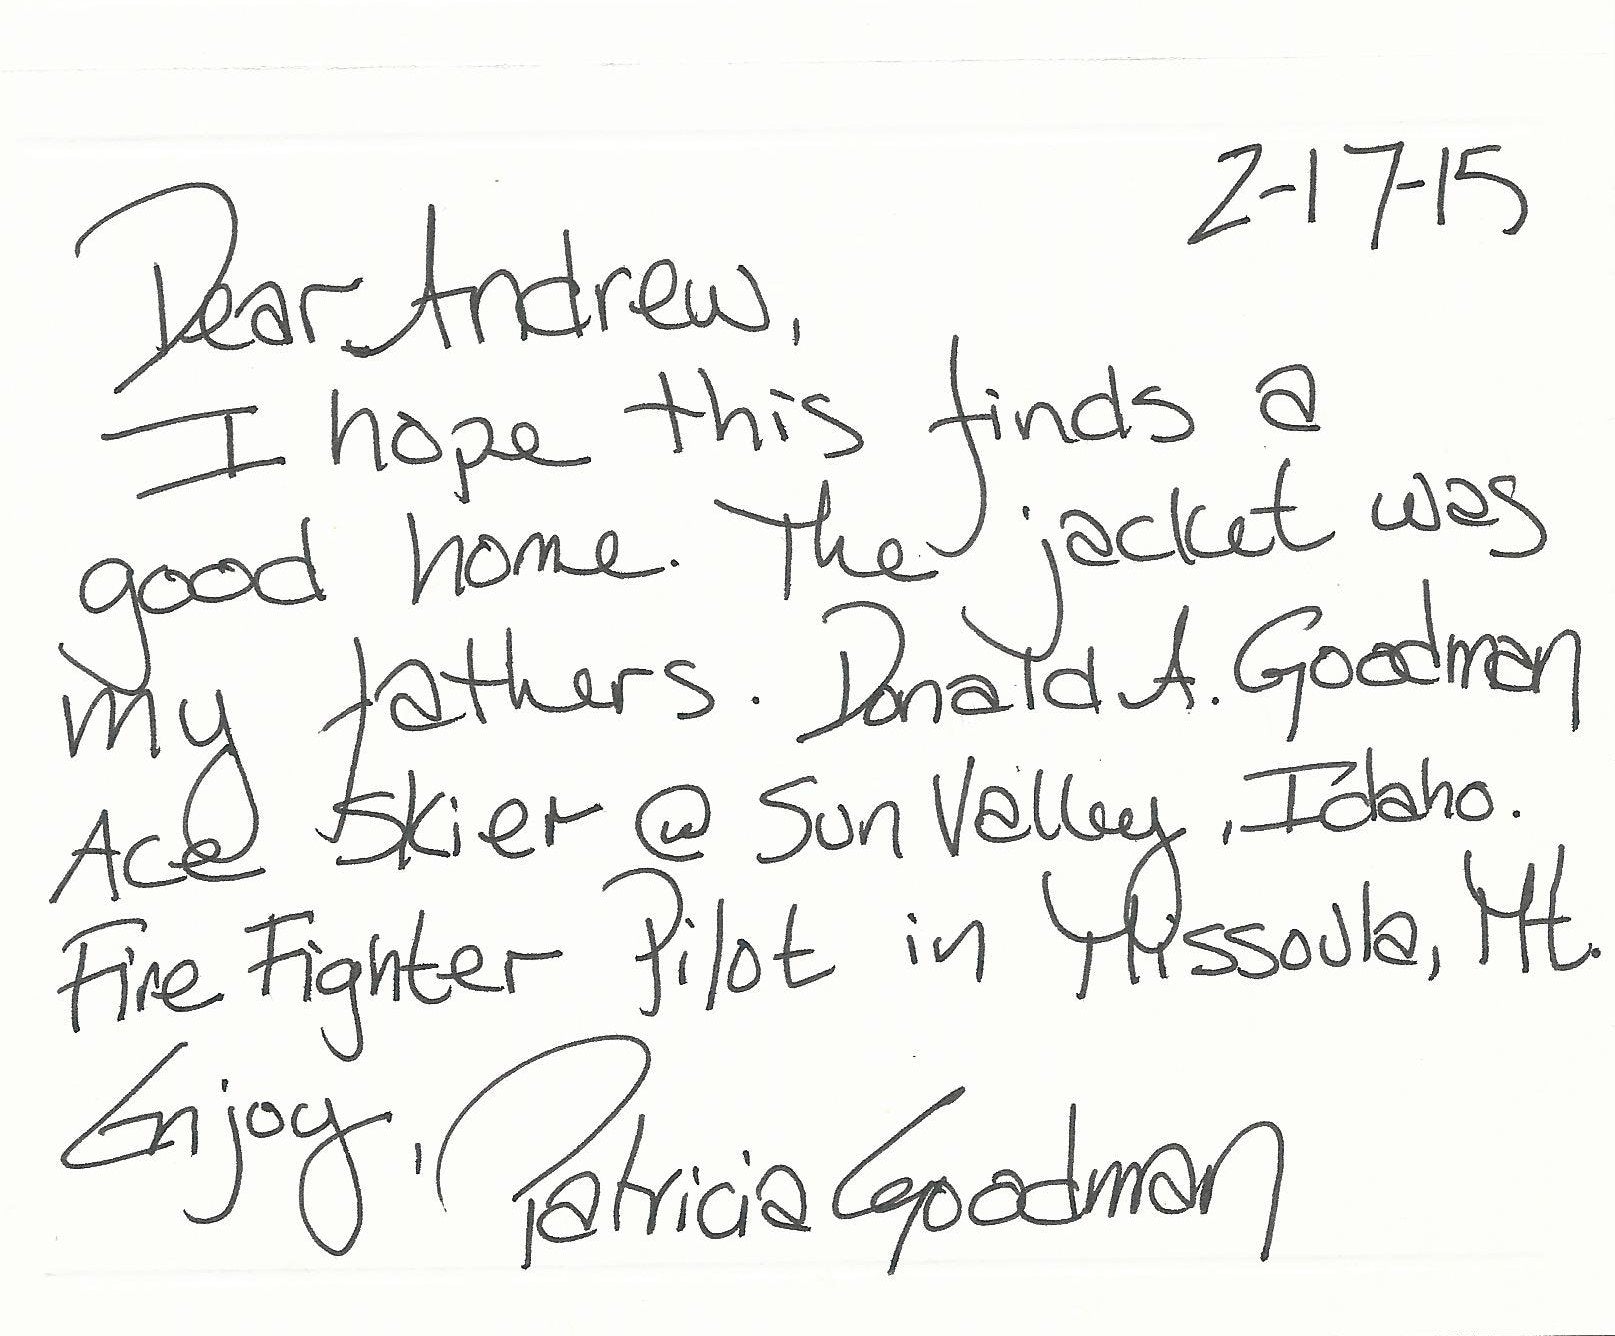 2-17-15
Dear Andrew,
I hope this finds a
good home. The jacket was
my fathers. Donald A. Goodman
Ace Skier @ Sun Valley, Idaho.
Fire Fighter Pilot in Missoula, Mt.
Enjoy, Patricia Goodman